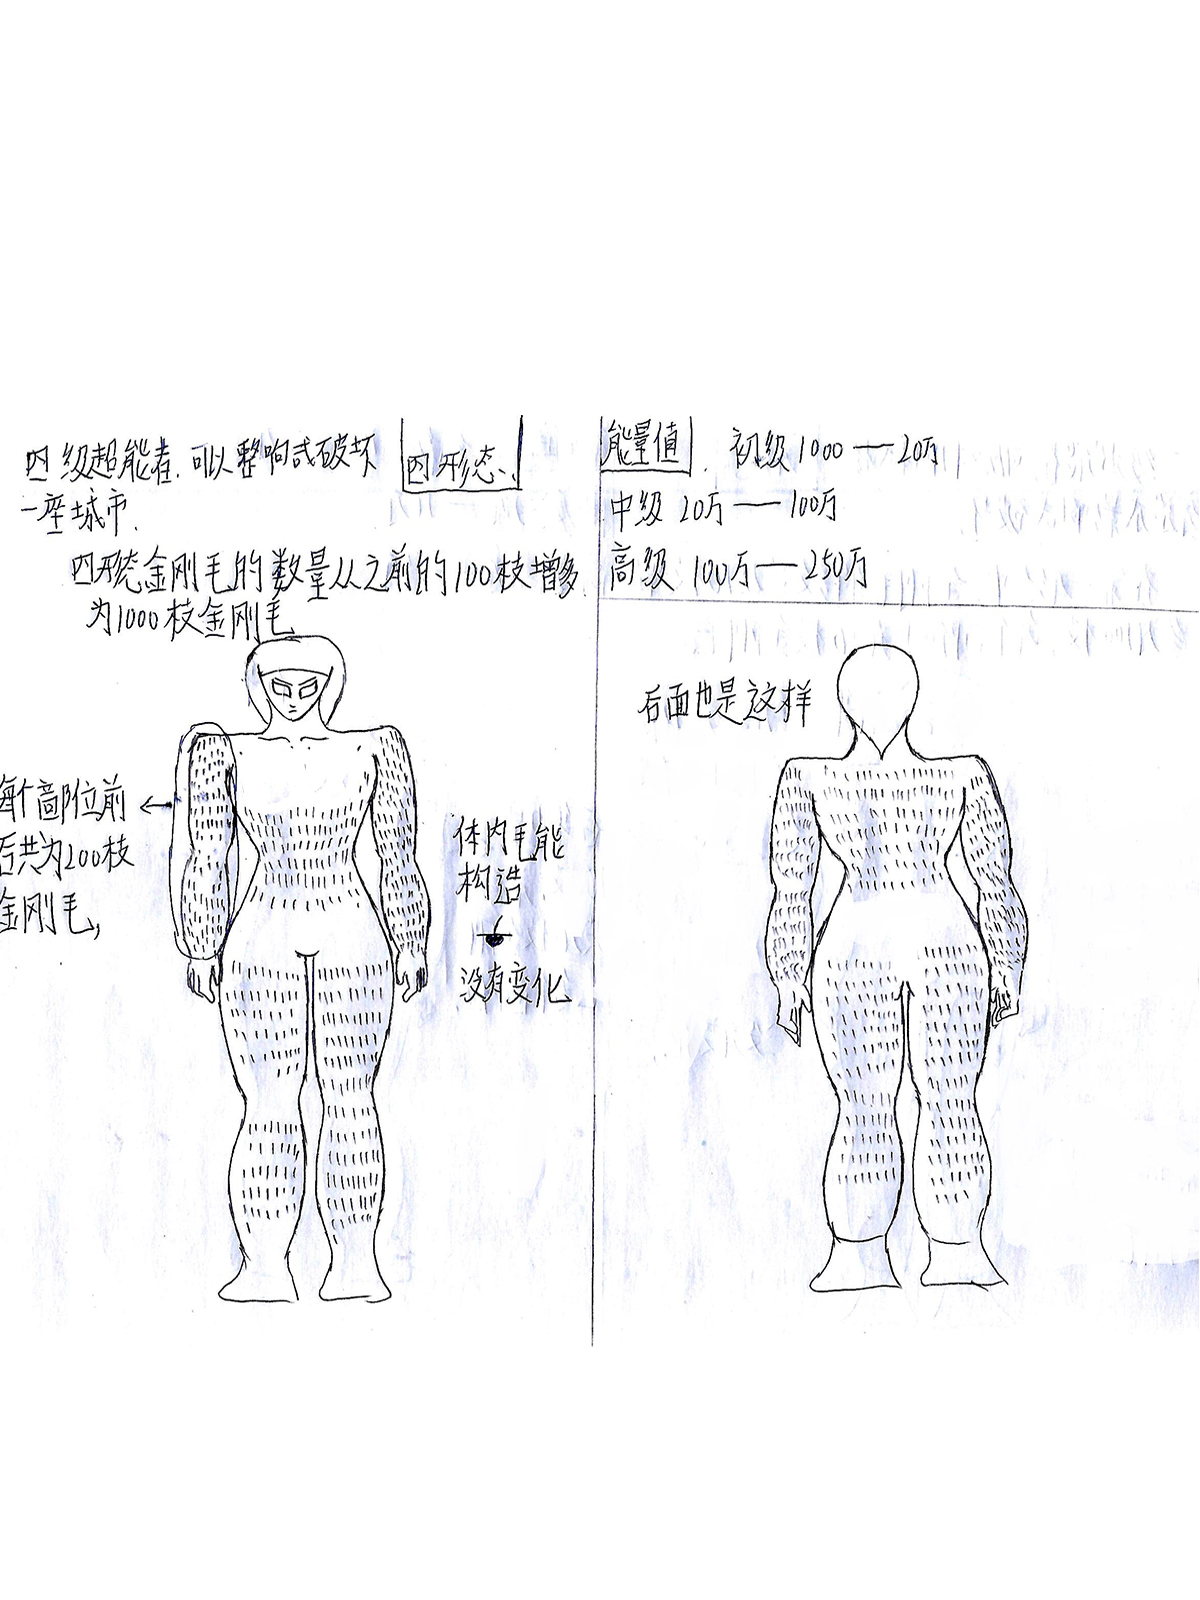 四级超能者.可以影响或破坏
一座城市.
四形态.
四形态金刚毛的数量从之前的100枝增多.
为1000枝金刚毛
每个部位前
后共为200枝
金刚毛,
体内毛能
构造
没有变化
能量值. 初级1000—20万
中级 20万—100万
高级 100万—250万
后面也是这样